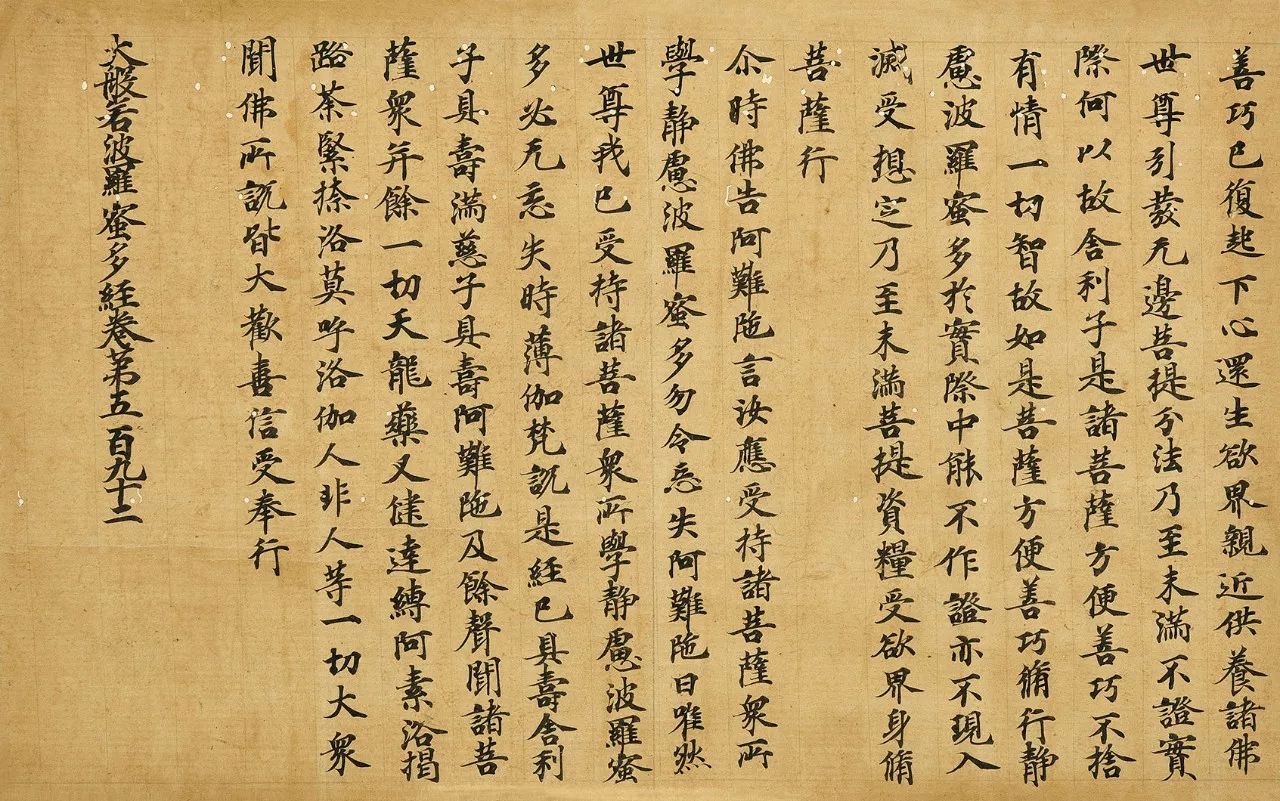 善巧已復起下心還生欲界親近供養諸佛
世尊引發无邊菩提分法乃至未滿不證實
際何以故舍利子是諸菩薩方便善巧不捨
有情一切智故如是菩薩方便善巧脩行静
慮波羅蜜多於實際中能不作證亦不現入
滅受想定乃至未滿菩提資糧受欲界身脩
菩薩行
尒時佛告阿難陁言汝應受持諸菩薩衆所
學静慮波羅蜜多勿令忘失阿難陁曰唯然
世尊我已受持諸菩薩衆所學静慮波羅蜜
多必无忘失時薄伽梵說是經已具壽舍利
子具壽滿慈子具壽阿難陁及餘聲聞諸菩
薩衆并餘一切天龍藥叉健達縛阿素洛揭
路荼緊捺洛莫呼洛伽人非人等一切大衆
聞佛所說皆大歡喜信受奉行
大般若波羅蜜多經卷第五百九十二